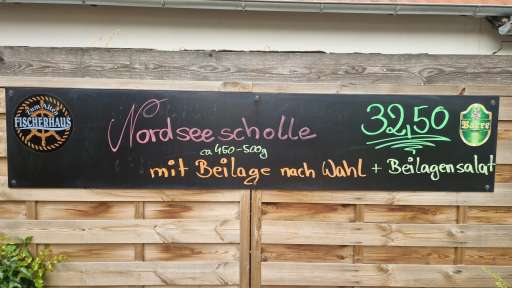 FISCHERHAUS
Nordseescholle
ca 450-500g
32,50
mit Beilage nach Wahl + Beilagensalat
Barre